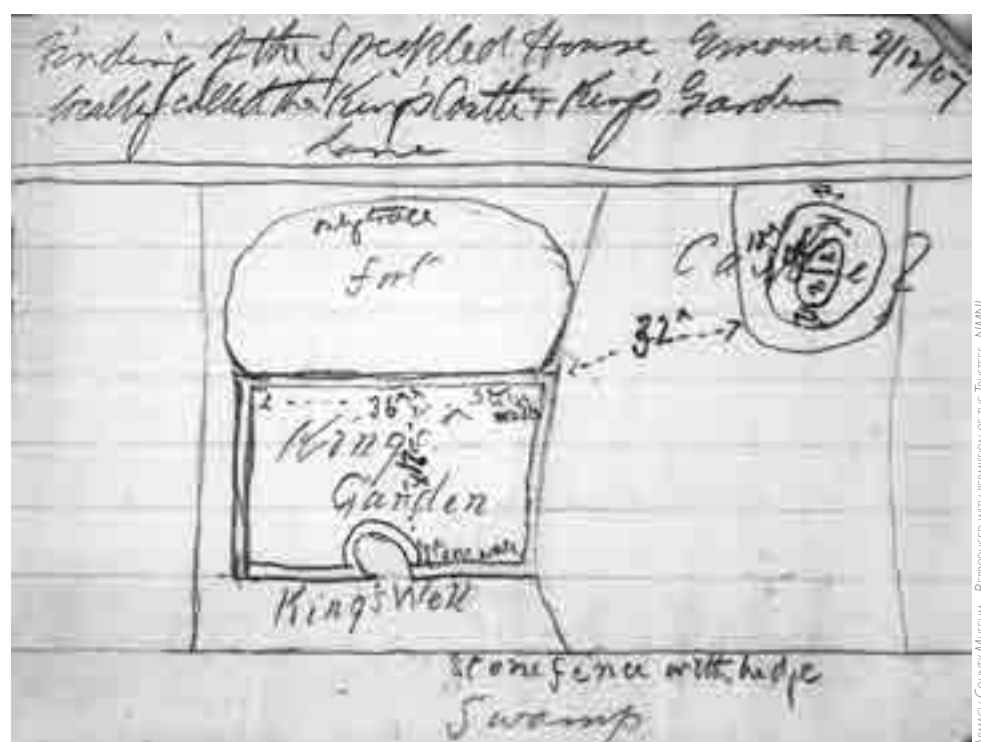 Finding of the Speckled House Emania 2/12/07
locally called the King's Castle & King's Garden
Lane
only trace
fort
32^
Castle
36^
Stone
walls
King's
Garden
Stone wall
King's Well
Stone fence with hedge
Swamp
ARMAGH COUNTY MUSEUM REPRODUCED WITH PERMISSION OF THE TRUSTEES NMNI